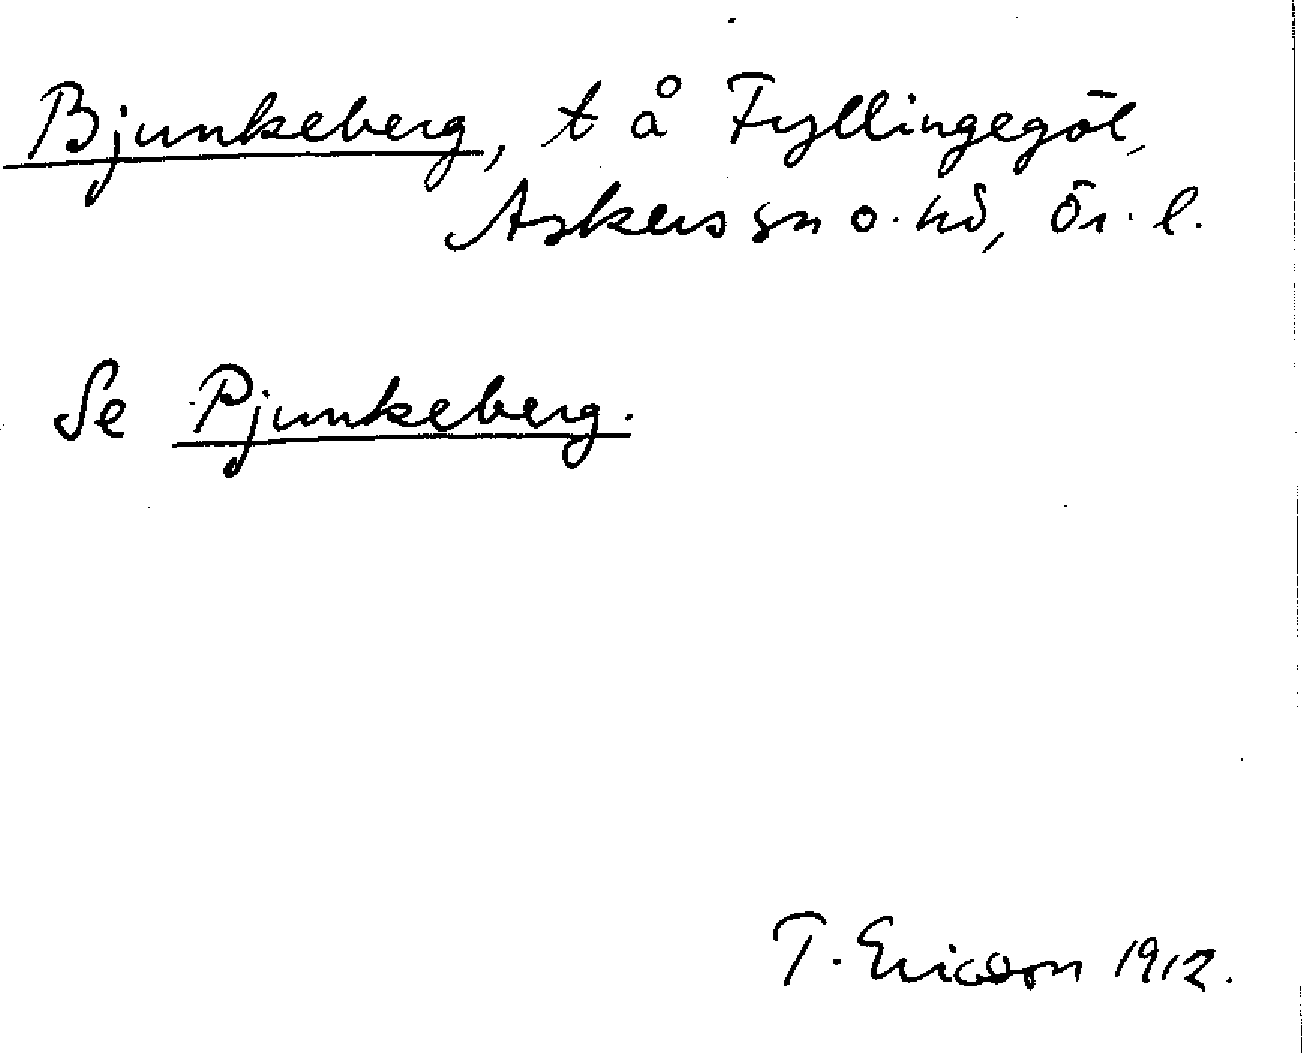 Bjunkeberg, t å Fyllingegöl,
Askers sn o. hd, Ör. l.
Se Pjunkeberg.
T. Ericson 1912.